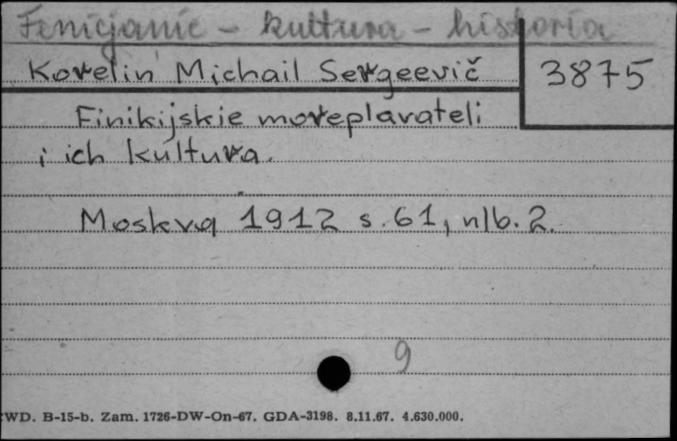 Fenicjanie - kultura - historia
Korelin Michail Sergeevič 3875
Finikijskie moreplavateli
i ich kul'tura.
Moskva 1912 s. 61, nlb. 2.
9
WD. B-15-b. Zam. 1726-DW-On-67. GDA-3198. 8.11.67. 4.630.000.